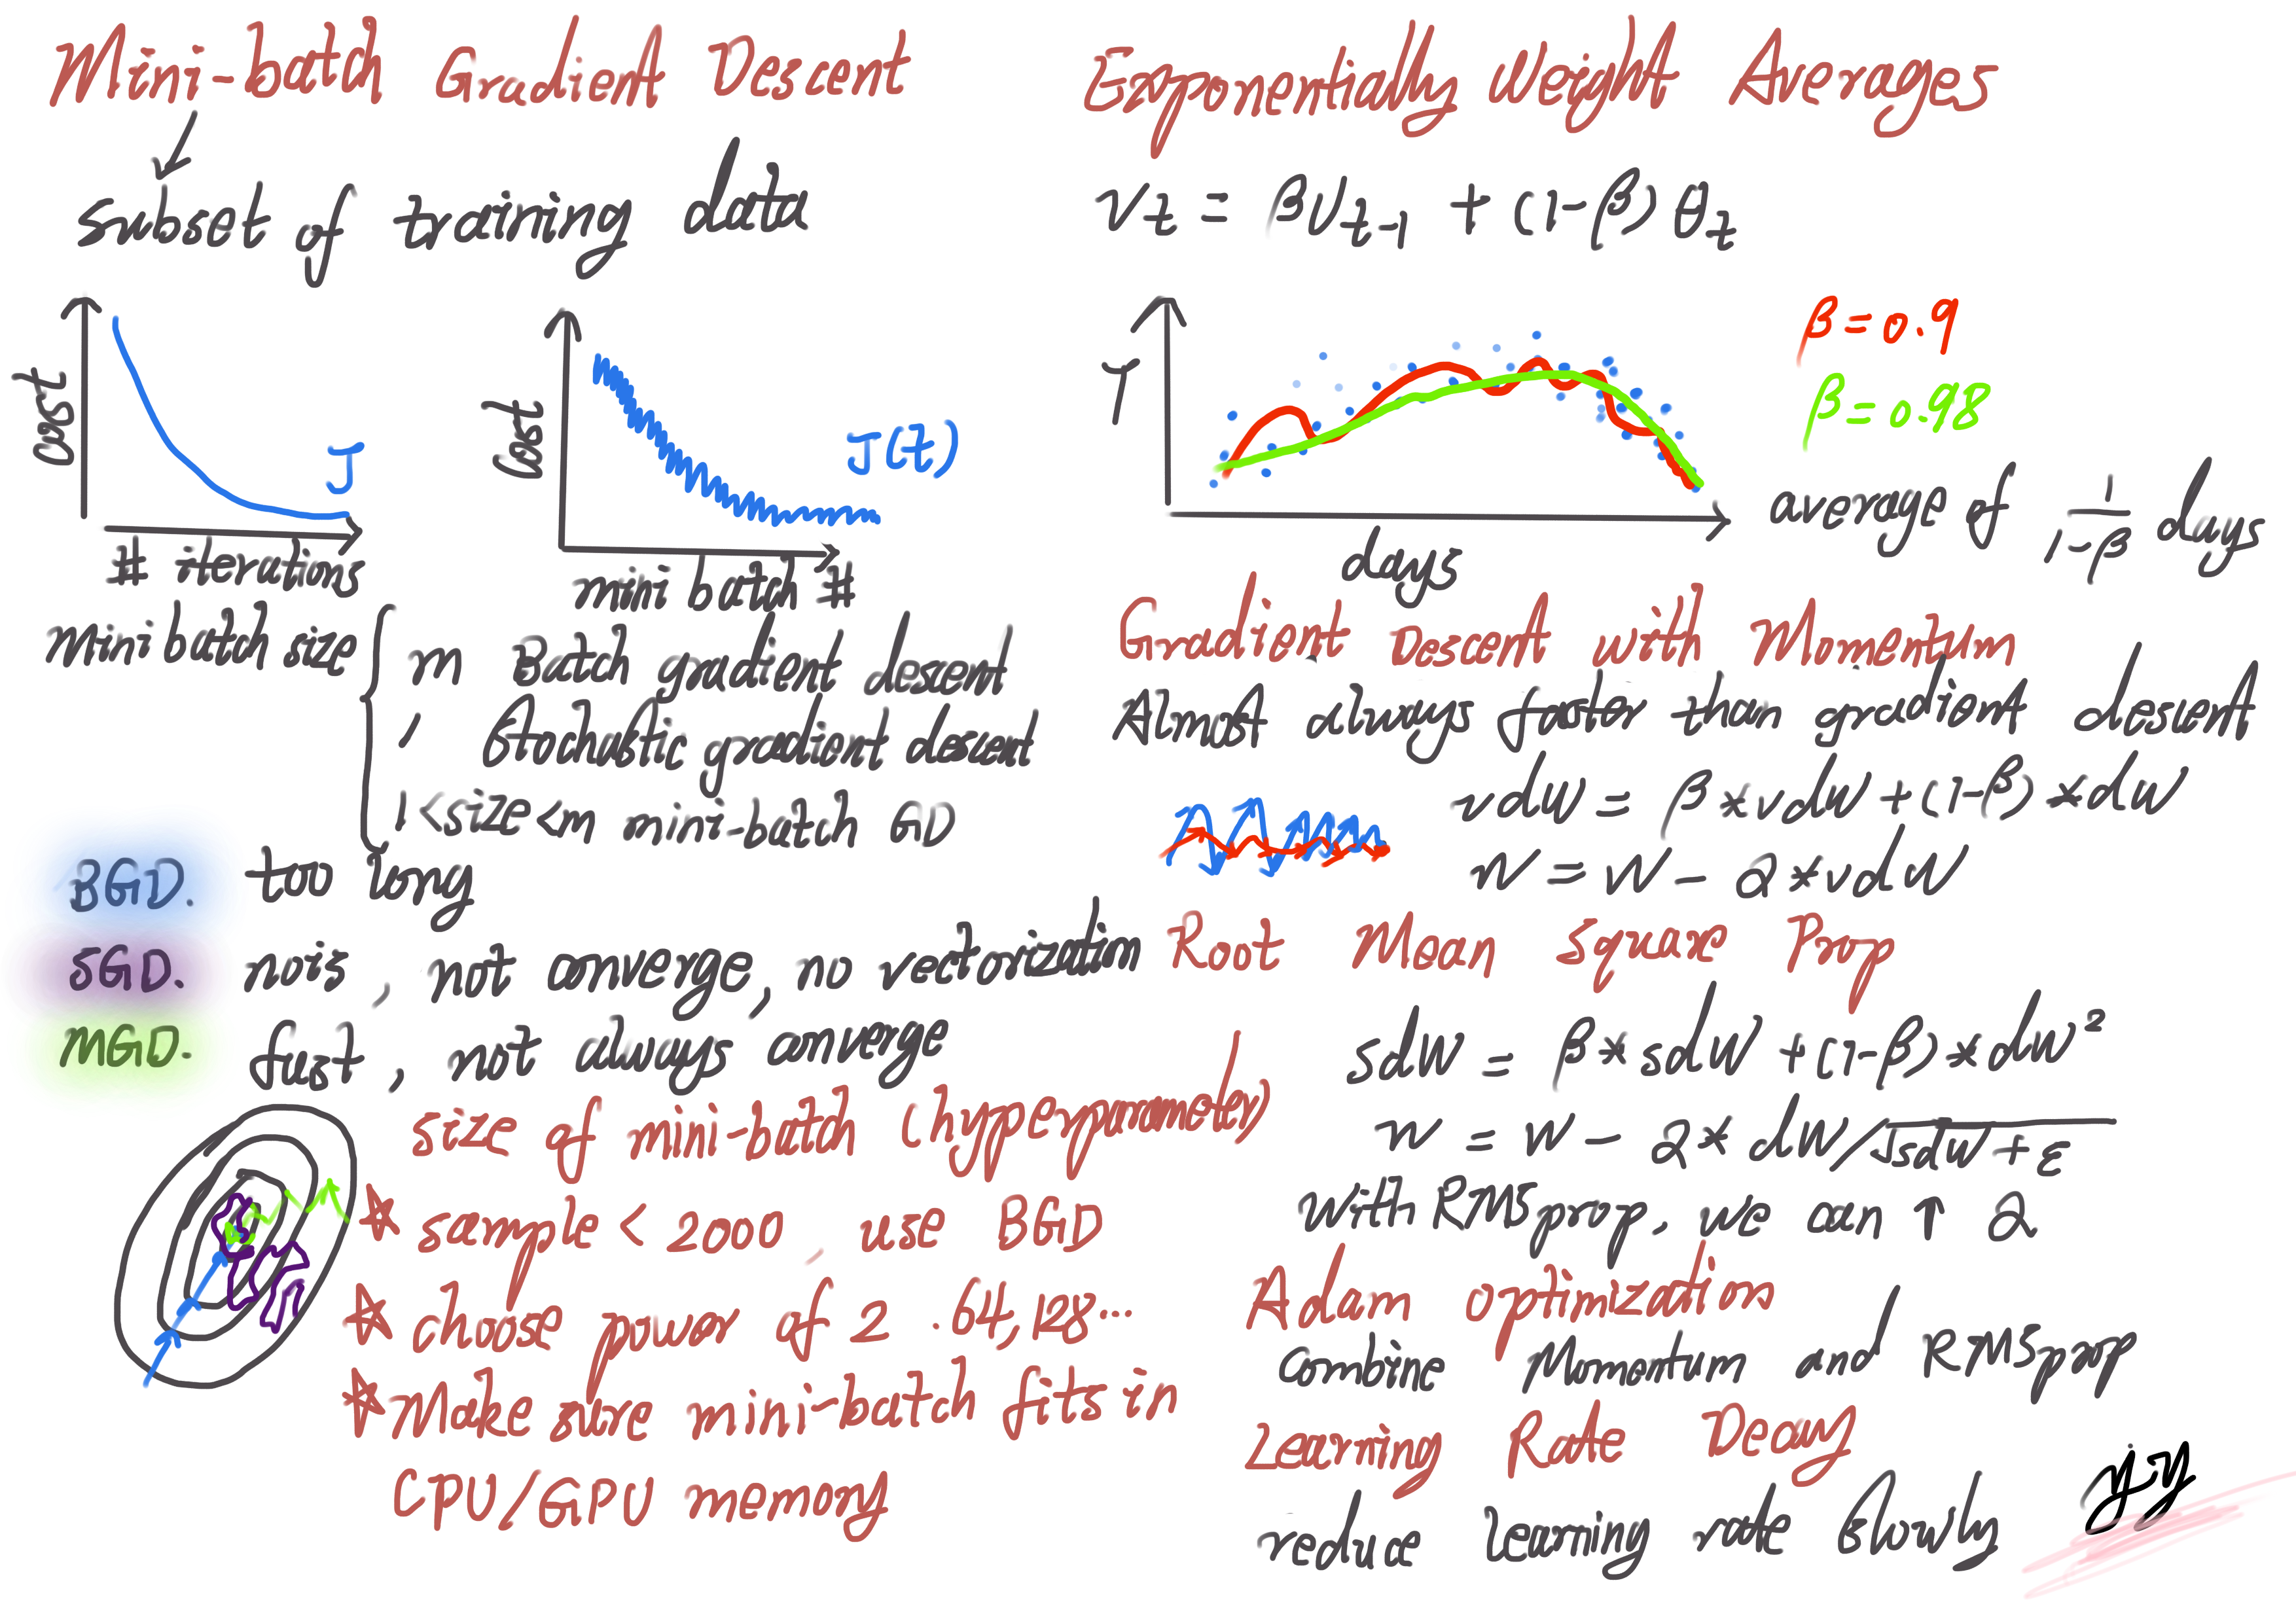 Mini-batch Gradient Descent
subset of training data
cost
J
# iterations
Cost
J(t)
mini batch #
Mini batch size
m Batch gradient descent
1 Stochastic gradient descent
1<size<m mini-batch GD
BGD. too long
SGD. nois, not converge, no vectorization
MGD. fast, not always converge
size of mini-batch (hyperparameter)
☆ sample < 2000, use BGD
☆ choose power of 2 .64,128...
☆ Make sure mini-batch fits in
CPU/GPU memory
Exponentially Weight Averages
Vt = βVt-1 + (1-β)θt
T
days
β=0.9
β=0.98
average of 1/1-β days
Gradient Descent with Momentum
Almost always faster than gradient descent
vdw = β*vdw+(1-β)*dw
W = W - α*vdW
Root Mean Square Prop
sdW = β*sdW+(1-β)*dw²
W = W - α*dW/√sdw+ε
With RMSprop, we can ↑ α
Adam optimization
Combine Momentum and RMSprop
Learning Rate Decay
reduce learning rate slowly
yy